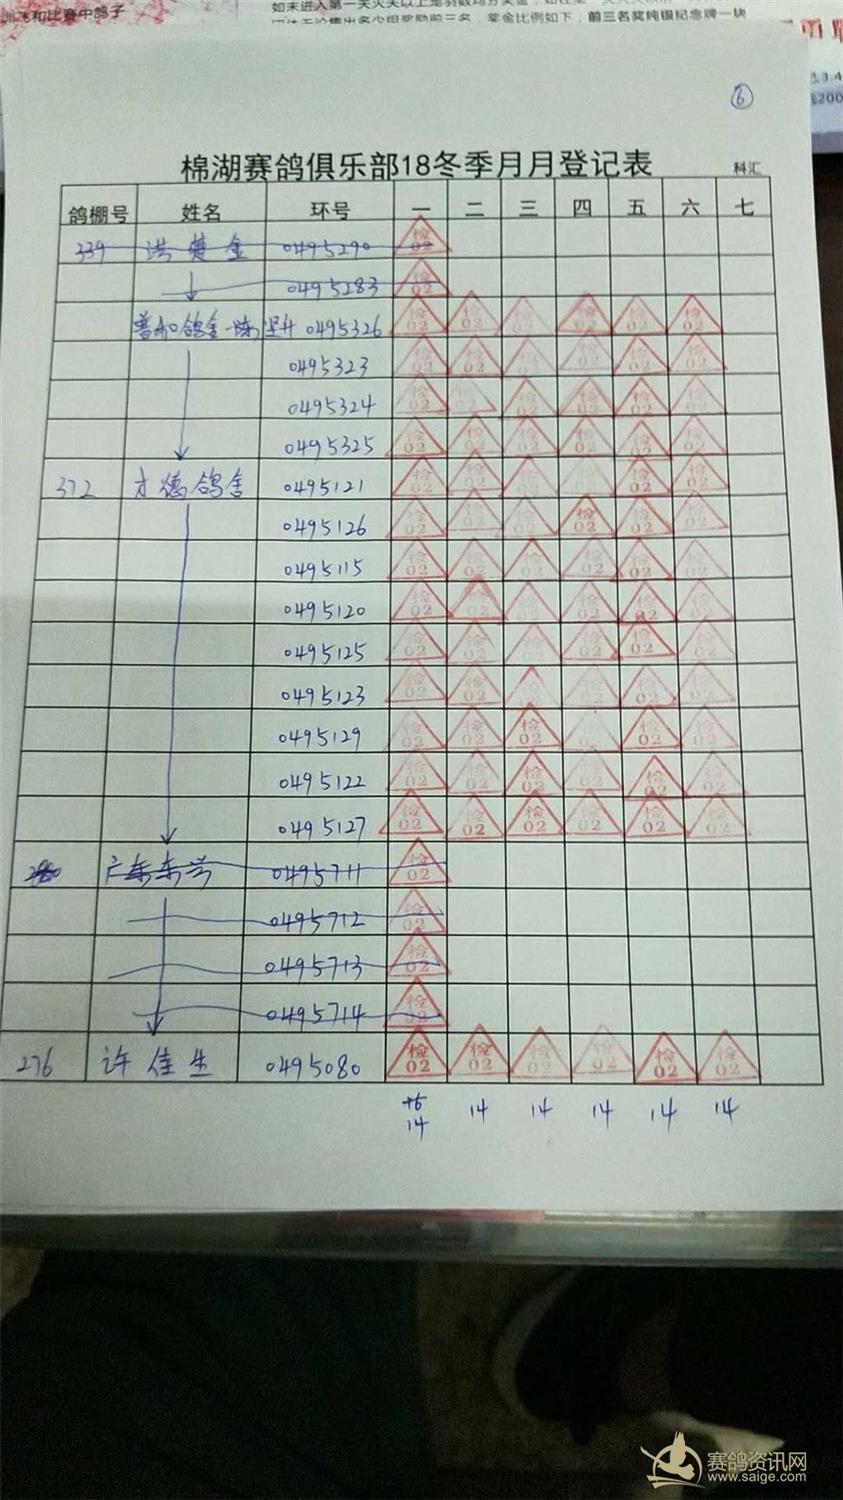 训飞和比赛中鸽子
奖金比例如下，前三名奖纯银纪念牌一块
6
棉湖赛鸽俱乐部18冬季月月登记表
科汇
鸽棚号 姓名 环号 一 二 三 四 五 六 七
339 洪楚金 0495290 检02
0495283 检02
普和鸽舍-陈坚升 0495326 检02 检02 检02 检02 检02 检02
0495323 检02 检02 检02 检02 检02 检02
0495324 检02 检02 检02 检02 检02 检02
0495325 检02 检02 检02 检02 检02 检02
372 才德鸽舍 0495121 检02 检02 检02 检02 检02 检02
0495126 检02 检02 检02 检02 检02 检02
0495115 检02 检02 检02 检02 检02 检02
0495120 检02 检02 检02 检02 检02 检02
0495125 检02 检02 检02 检02 检02 检02
0495123 检02 检02 检02 检02 检02 检02
0495129 检02 检02 检02 检02 检02 检02
0495122 检02 检02 检02 检02 检02 检02
0495127 检02 检02 检02 检02 检02 检02
广东东兴 0495711 检02
0495712 检02
0495713 检02
0495714 检02
276 许佳生 0495080 检02 检02 检02 检02 检02 检02
14 14 14 14 14 14
赛鸽资讯网
www.saige.com